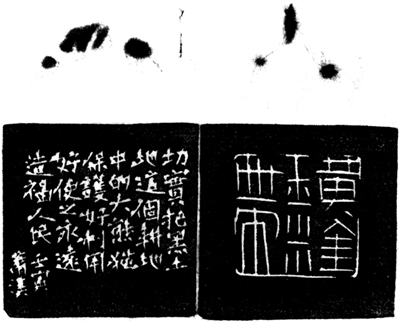 黄金
玉米
帶
切實把黑土
地這個耕地
中的大熊猫
保護好利用
好使之永遠
造福人民 壬寅